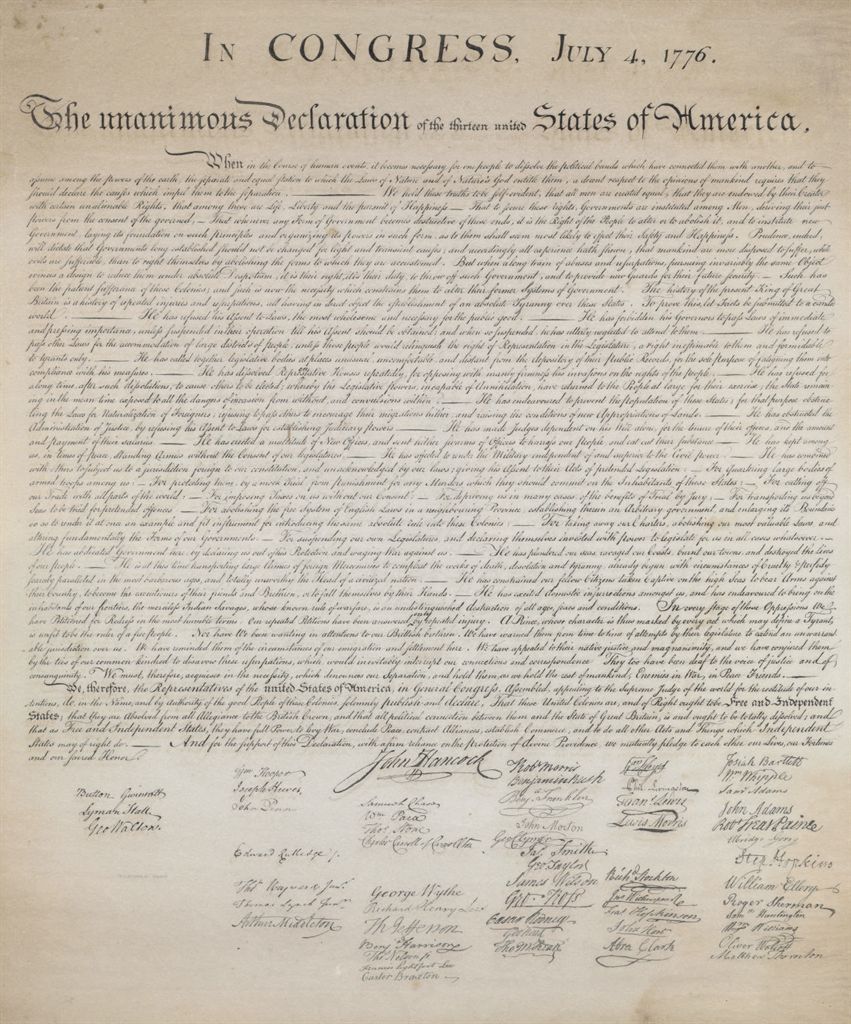 IN CONGRESS, JULY 4, 1776.
The unanimous Declaration of the thirteen united States of America,
When in the Course of human events, it becomes necessary for one people to dissolve the political bands which have connected them with another, and to
assume among the powers of the earth, the separate and equal station to which the Laws of Nature and of Nature's God entitle them, a decent respect to the opinions of mankind requires that they
should declare the causes which impel them to the separation. — We hold these truths to be self-evident, that all men are created equal, that they are endowed by their Creator
with certain unalienable Rights, that among these are Life, Liberty and the pursuit of Happiness. — That to secure these rights, Governments are instituted among Men, deriving their just
powers from the consent of the governed, — That whenever any Form of Government becomes destructive of these ends, it is the Right of the People to alter or to abolish it, and to institute new
Government, laying its foundation on such principles and organizing its powers in such form, as to them shall seem most likely to effect their Safety and Happiness. Prudence, indeed,
will dictate that Governments long established should not be changed for light and transient causes; and accordingly all experience hath shewn, that mankind are more disposed to suffer, while
evils are sufferable, than to right themselves by abolishing the forms to which they are accustomed. But when a long train of abuses and usurpations, pursuing invariably the same Object
evinces a design to reduce them under absolute Despotism, it is their right, it is their duty, to throw off such Government, and to provide new Guards for their future security. — Such has
been the patient sufferance of these Colonies; and such is now the necessity which constrains them to alter their former Systems of Government. The history of the present King of Great
Britain is a history of repeated injuries and usurpations, all having in direct object the establishment of an absolute Tyranny over these States. To prove this, let Facts be submitted to a candid
world. — He has refused his Assent to Laws, the most wholesome and necessary for the public good. — He has forbidden his Governors to pass Laws of immediate
and pressing importance, unless suspended in their operation till his Assent should be obtained; and when so suspended, he has utterly neglected to attend to them. — He has refused to
pass other Laws for the accommodation of large districts of people, unless those people would relinquish the right of Representation in the Legislature, a right inestimable to them and formidable
to tyrants only. — He has called together legislative bodies at places unusual, uncomfortable, and distant from the depository of their public Records, for the sole purpose of fatiguing them into
compliance with his measures. — He has dissolved Representative Houses repeatedly, for opposing with manly firmness his invasions on the rights of the people. — He has refused for
a long time, after such dissolutions, to cause others to be elected; whereby the Legislative powers, incapable of Annihilation, have returned to the People at large for their exercise; the State remain-
ing in the mean time exposed to all the dangers of invasion from without, and convulsions within. — He has endeavoured to prevent the population of these States; for that purpose obstruc-
ting the Laws for Naturalization of Foreigners; refusing to pass others to encourage their migrations hither, and raising the conditions of new Appropriations of Lands. — He has obstructed the
Administration of Justice, by refusing his Assent to Laws for establishing Judiciary powers. — He has made Judges dependent on his Will alone, for the tenure of their offices, and the amount
and payment of their salaries. — He has erected a multitude of New Offices, and sent hither swarms of Officers to harrass our people, and eat out their substance. — He has kept among
us, in times of peace, Standing Armies without the Consent of our legislatures. — He has affected to render the Military independent of and superior to the Civil power. — He has combined
with others to subject us to a jurisdiction foreign to our constitution, and unacknowledged by our laws; giving his Assent to their Acts of pretended Legislation: — For Quartering large bodies of
armed troops among us: — For protecting them, by a mock Trial, from punishment for any Murders which they should commit on the Inhabitants of these States: — For cutting off
our Trade with all parts of the world: — For imposing Taxes on us without our Consent: — For depriving us in many cases, of the benefits of Trial by Jury: — For transporting us beyond
Seas to be tried for pretended offences — For abolishing the free System of English Laws in a neighbouring Province, establishing therein an Arbitrary government, and enlarging its Boundaries
so as to render it at once an example and fit instrument for introducing the same absolute rule into these Colonies: — For taking away our Charters, abolishing our most valuable Laws, and
altering fundamentally the Forms of our Governments: — For suspending our own Legislatures, and declaring themselves invested with power to legislate for us in all cases whatsoever. —
He has abdicated Government here, by declaring us out of his Protection and waging War against us. — He has plundered our seas, ravaged our Coasts, burnt our towns, and destroyed the lives
of our people. — He is at this time transporting large Armies of foreign Mercenaries to compleat the works of death, desolation and tyranny, already begun with circumstances of Cruelty & perfidy
scarcely paralleled in the most barbarous ages, and totally unworthy the Head of a civilized nation. — He has constrained our fellow Citizens taken Captive on the high Seas to bear Arms against
their Country, to become the executioners of their friends and Brethren, or to fall themselves by their Hands. — He has excited domestic insurrections amongst us, and has endeavoured to bring on the
inhabitants of our frontiers, the merciless Indian Savages, whose known rule of warfare, is an undistinguished destruction of all ages, sexes and conditions. In every stage of these Oppressions We
have Petitioned for Redress in the most humble terms: Our repeated Petitions have been answered only by repeated injury. A Prince, whose character is thus marked by every act which may define a Tyrant,
is unfit to be the ruler of a free people. Nor have We been wanting in attentions to our Brittish brethren. We have warned them from time to time of attempts by their legislature to extend an unwarrant-
able jurisdiction over us. We have reminded them of the circumstances of our emigration and settlement here. We have appealed to their native justice and magnanimity, and we have conjured them
by the ties of our common kindred to disavow these usurpations, which, would inevitably interrupt our connections and correspondence. They too have been deaf to the voice of justice and of
consanguinity. We must, therefore, acquiesce in the necessity, which denounces our Separation, and hold them, as we hold the rest of mankind, Enemies in War, in Peace Friends. —
We, therefore, the Representatives of the united States of America, in General Congress, Assembled, appealing to the Supreme Judge of the world for the rectitude of our in-
tentions, do, in the Name, and by Authority of the good People of these Colonies, solemnly publish and declare, That these United Colonies are, and of Right ought to be Free and Independent
States; that they are Absolved from all Allegiance to the British Crown, and that all political connection between them and the State of Great Britain, is and ought to be totally dissolved; and
that as Free and Independent States, they have full Power to levy War, conclude Peace, contract Alliances, establish Commerce, and to do all other Acts and Things which Independent
States may of right do. — And for the support of this Declaration, with a firm reliance on the protection of divine Providence, we mutually pledge to each other our Lives, our Fortunes
and our sacred Honor.
Button Gwinnett
Lyman Hall
Geo Walton.
Wm Hooper
Joseph Hewes,
John Penn
Edward Rutledge /.
Thos Heyward Junr.
Thomas Lynch Junr.
Arthur Middleton
John Hancock
Samuel Chase
Wm Paca
Thos Stone
Charles Carroll of Carrollton
George Wythe
Richard Henry Lee
Th Jefferson
Benja Harrison
Thos Nelson jr.
Francis Lightfoot Lee
Carter Braxton
Robt Morris
Benjamin Rush
Benja Franklin
John Morton
Geo Clymer
Jas Smith
Geo Taylor
James Wilson
Geo. Ross
Caesar Rodney
Geo Read
Tho M:Kean
Wm Floyd
Phil. Livingston
Frans Lewis
Lewis Morris
Richd Stockton
Jno Witherspoon
Fras Hopkinson
John Hart
Abra Clark
Josiah Bartlett
Wm Whipple
Saml Adams
John Adams
Robt Treat Paine
Elbridge Gerry
Step. Hopkins
William Ellery
Roger Sherman
Sam Huntington
Wm Williams
Oliver Wolcott
Matthew Thornton